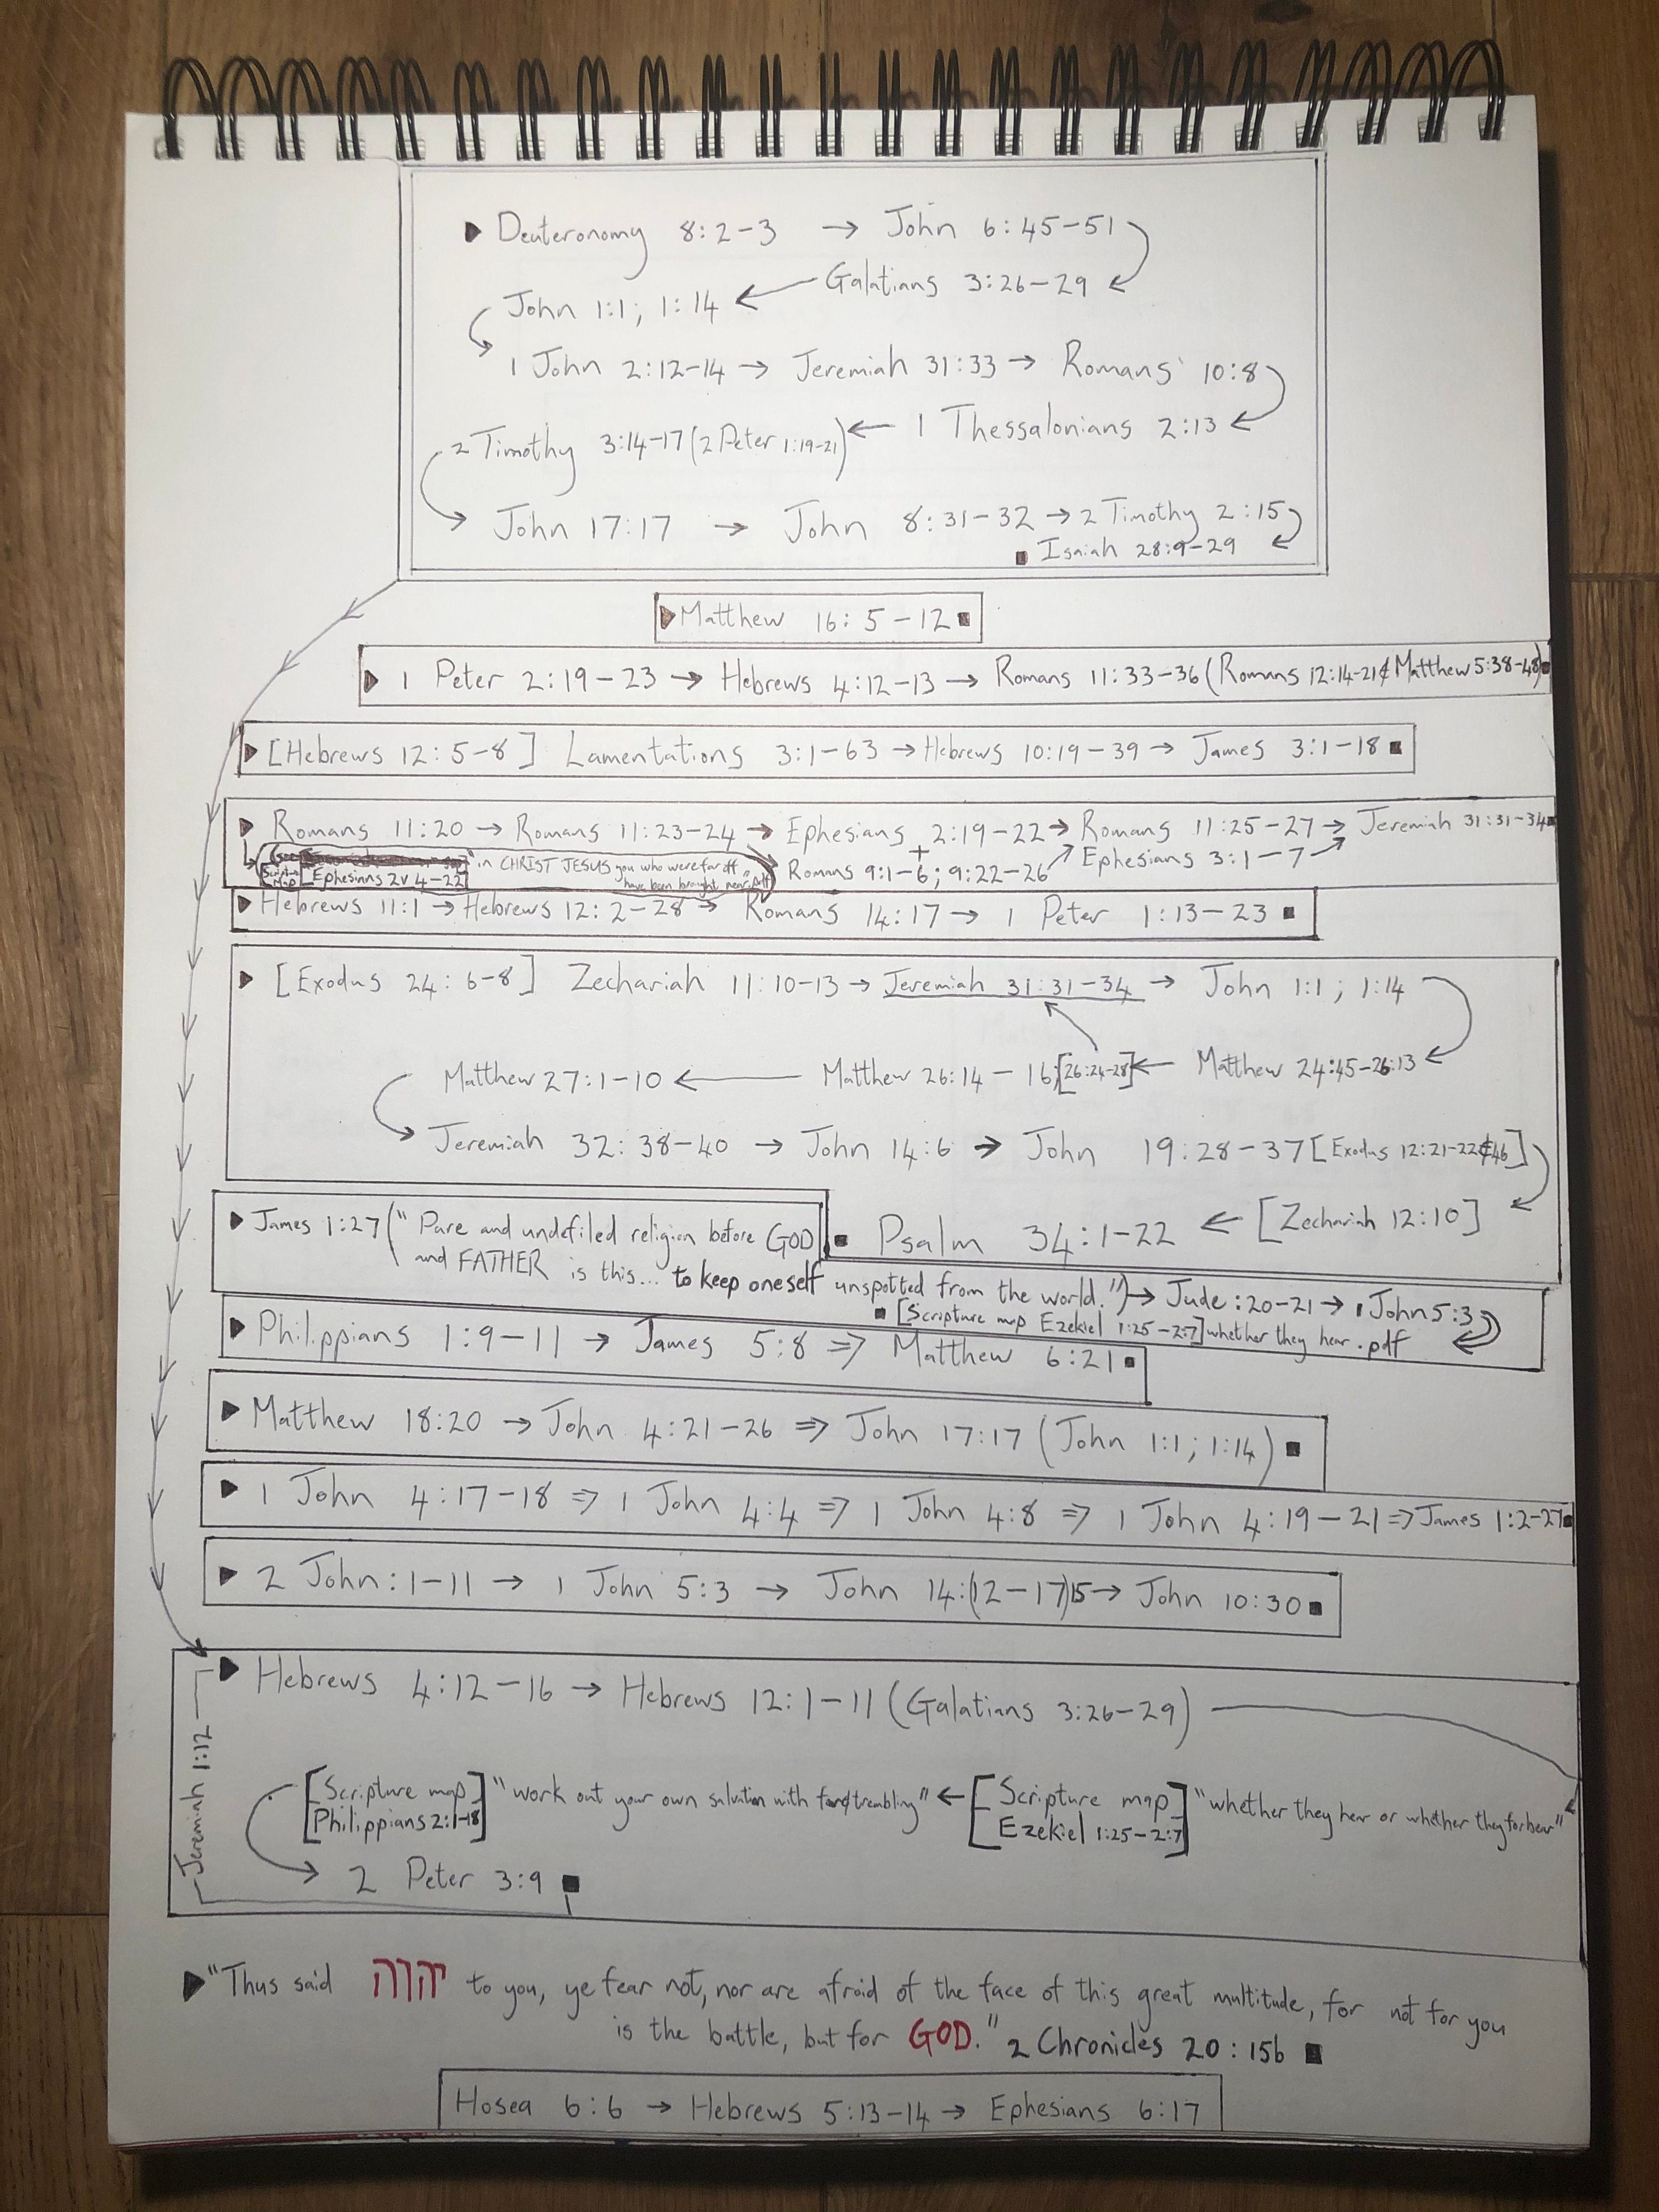 ▶ Deuteronomy 8:2-3 → John 6:45-51
John 1:1; 1:14 ← Galatians 3:26-29
1 John 2:12-14 → Jeremiah 31:33 → Romans 10:8
2 Timothy 3:14-17 (2 Peter 1:19-21) ← 1 Thessalonians 2:13
John 17:17 → John 8:31-32 → 2 Timothy 2:15
■ Isaiah 28:9-29
▶ Matthew 16:5-12 ■
▶ 1 Peter 2:19-23 → Hebrews 4:12-13 → Romans 11:33-36 (Romans 12:14-21 & Matthew 5:38-48) ■
▶ [Hebrews 12:5-8] Lamentations 3:1-63 → Hebrews 10:19-39 → James 3:1-18 ■
▶ Romans 11:20 → Romans 11:23-24 → Ephesians 2:19-22 → Romans 11:25-27 → Jeremiah 31:31-34 ■
(see
"in CHRIST JESUS you who were far off
+ Romans 9:1-6; 9:22-26 Ephesians 3:1-7
[Scripture Map Ephesians 2v4-22] have been brought near".pdf)
▶ Hebrews 11:1 → Hebrews 12:2-28 → Romans 14:17 → 1 Peter 1:13-23 ■
▶ [Exodus 24:6-8] Zechariah 11:10-13 → Jeremiah 31:31-34 → John 1:1; 1:14
Matthew 27:1-10 ← Matthew 26:14-16; [26:24-28] ← Matthew 24:45-26:13
Jeremiah 32:38-40 → John 14:6 → John 19:28-37 [Exodus 12:21-22 & 46]
■ Psalm 34:1-22 ← [Zechariah 12:10]
▶ James 1:27 ("Pure and undefiled religion before GOD
and FATHER is this... to keep oneself unspotted from the world.") → Jude:20-21 → 1 John 5:3
■ [Scripture map Ezekiel 1:25-2:7] whether they hear.pdf
▶ Philippians 1:9-11 → James 5:8 ⇒ Matthew 6:21 ■
▶ Matthew 18:20 → John 4:21-26 ⇒ John 17:17 (John 1:1; 1:14) ■
▶ 1 John 4:17-18 ⇒ 1 John 4:4 ⇒ 1 John 4:8 ⇒ 1 John 4:19-21 ⇒ James 1:2-27 ■
▶ 2 John:1-11 → 1 John 5:3 → John 14:(12-17)15 → John 10:30 ■
▶ Hebrews 4:12-16 → Hebrews 12:1-11 (Galatians 3:26-29)
Jeremiah 1:12
[Scripture map Philippians 2:1-18] "work out your own salvation with fear & trembling" ← [Scripture map Ezekiel 1:25-2:7] "whether they hear or whether they forbear"
2 Peter 3:9 ■
▶ "Thus said יהוה to you, ye fear not, nor are afraid of the face of this great multitude, for not for you
is the battle, but for GOD." 2 Chronicles 20:15b ■
Hosea 6:6 → Hebrews 5:13-14 → Ephesians 6:17